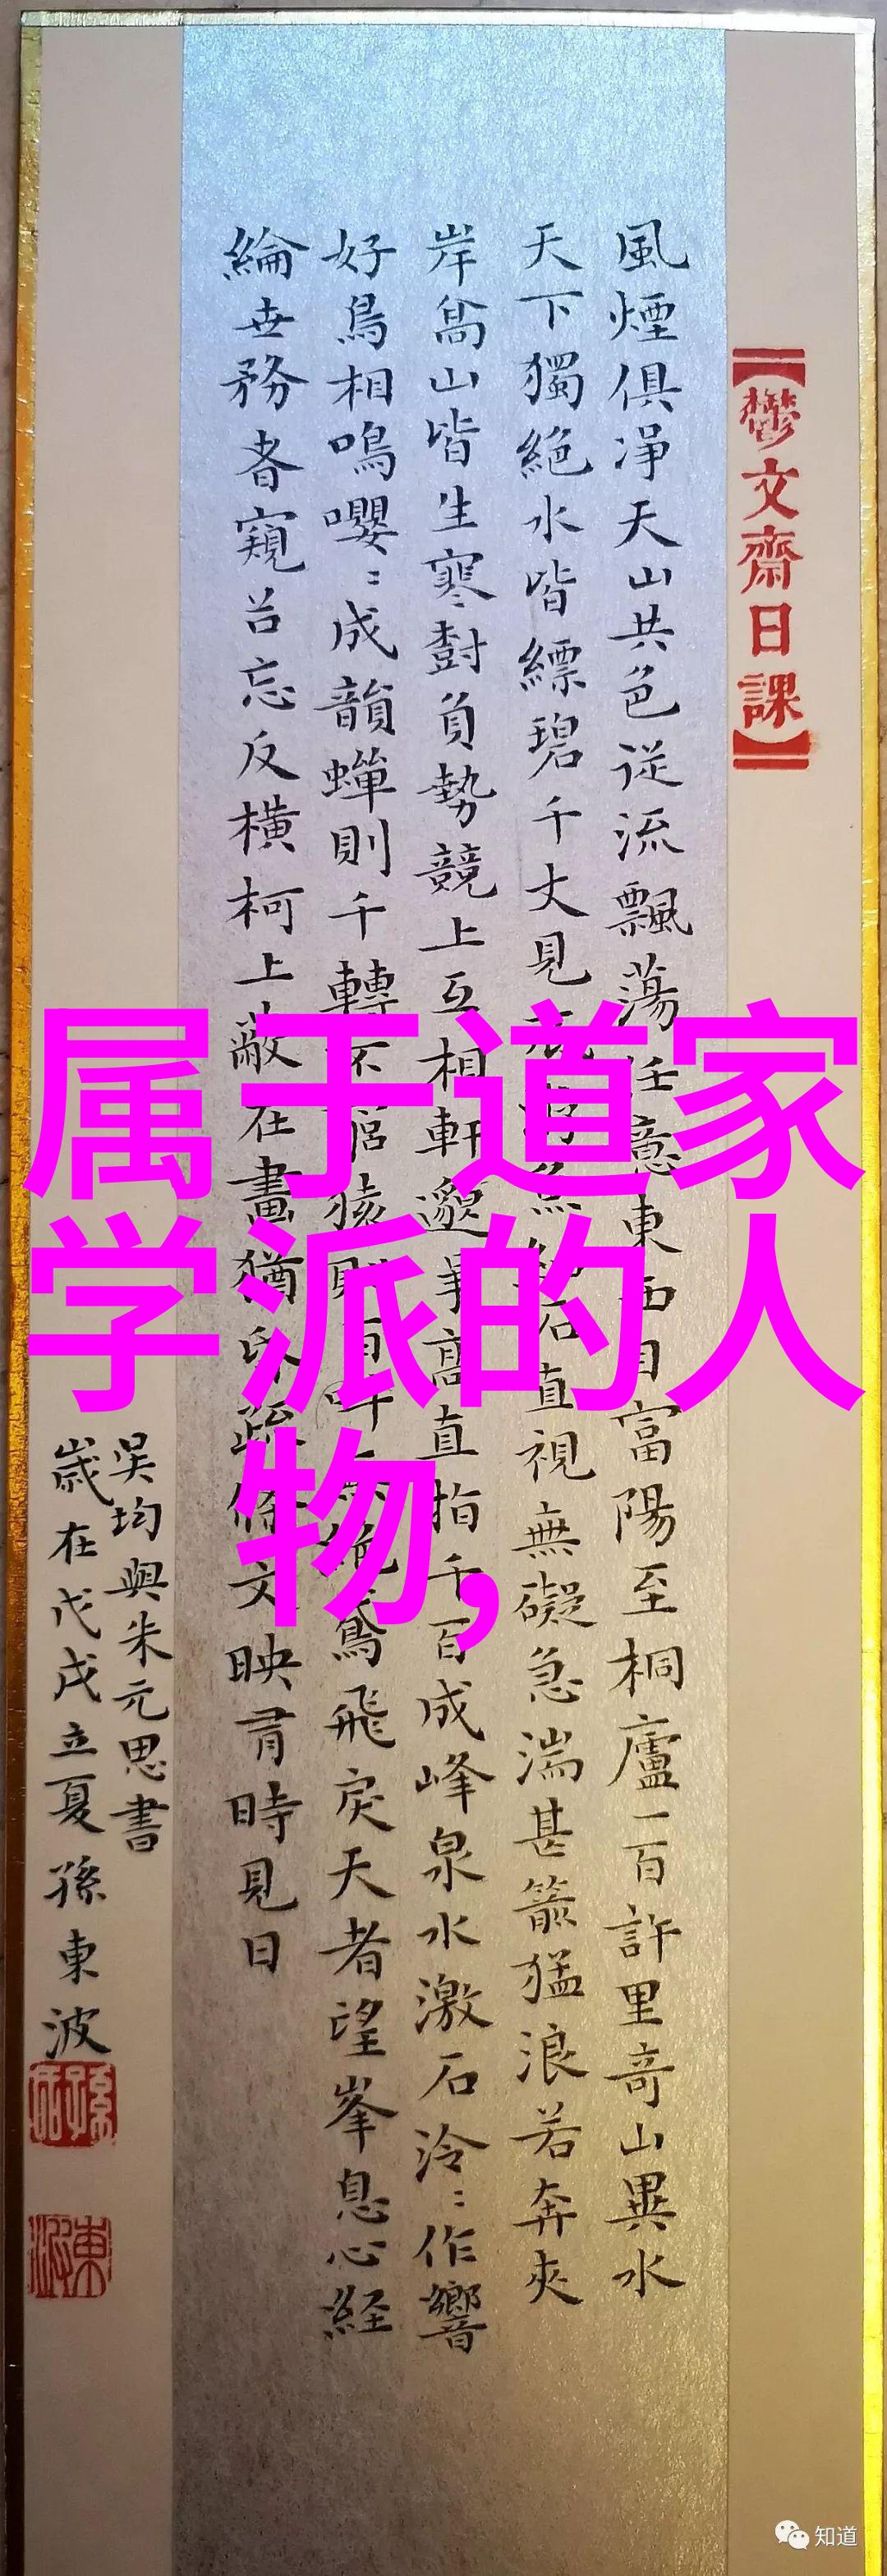 鬱文齋日課
風煙俱净天山共色從流飄蕩任意東西自富陽至桐廬一百許里奇山異水
天下獨絕水皆縹碧千丈見底游魚細石直視無礙急湍甚箭猛浪若奔夾
岸高山皆生寒樹負勢競上互相軒邈爭高直指千百成峰泉水激石泠〻作響
好鳥相鳴嚶〻成韻蟬則千轉不窮猿則百叫無絕鳶飛戾天者望峯息心経
綸世務者窺谷忘反橫柯上蔽在晝猶昏疏條交映有時見日
吳均與朱元思書
歲在戊戌立夏孫東波
属于道家
学派的人
物,
知道